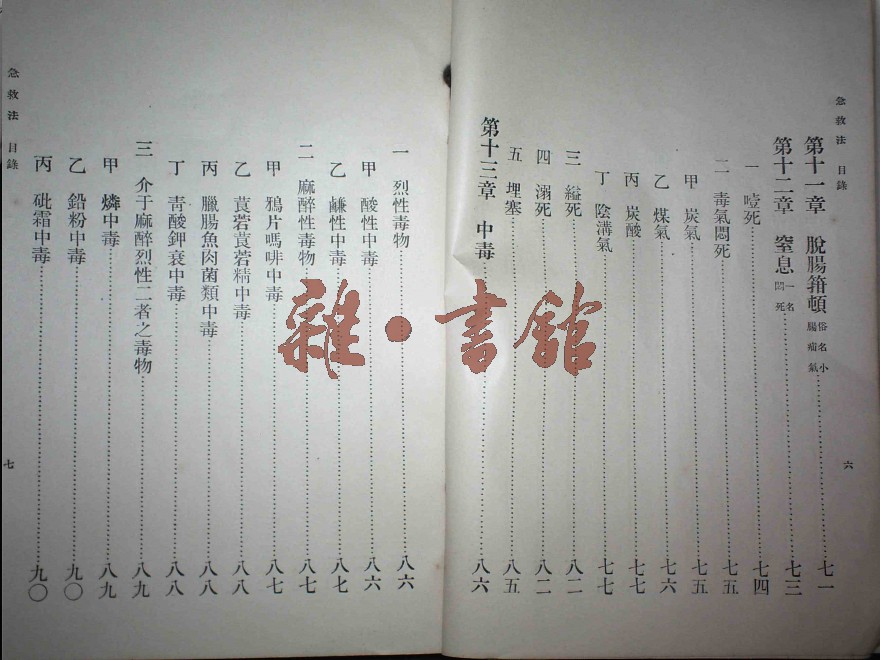 急救法 目錄
六
第十一章 脫腸箝頓 俗名小腸疝氣 七一
第十二章 窒息 一名悶死 七三
一 噎死 七四
二 毒氣悶死 七五
甲 炭氣 七五
乙 煤氣 七六
丙 炭酸 七七
丁 陰溝氣 七七
三 縊死 八二
四 溺死 八二
五 埋塞 八五
第十三章 中毒 八六
一 烈性毒物 八六
甲 酸性中毒 八六
乙 鹻性中毒 八七
二 麻醉性毒物 八七
甲 鴉片嗎啡中毒 八七
乙 莨菪莨菪精中毒 八八
丙 臘腸魚肉菌類中毒 八八
丁 靑酸鉀衰中毒 八八
三 介于麻醉烈性二者之毒物 八九
甲 燐中毒 八九
乙 鉛粉中毒 九〇
丙 砒霜中毒 九〇
急救法 目錄
七
雜·書館